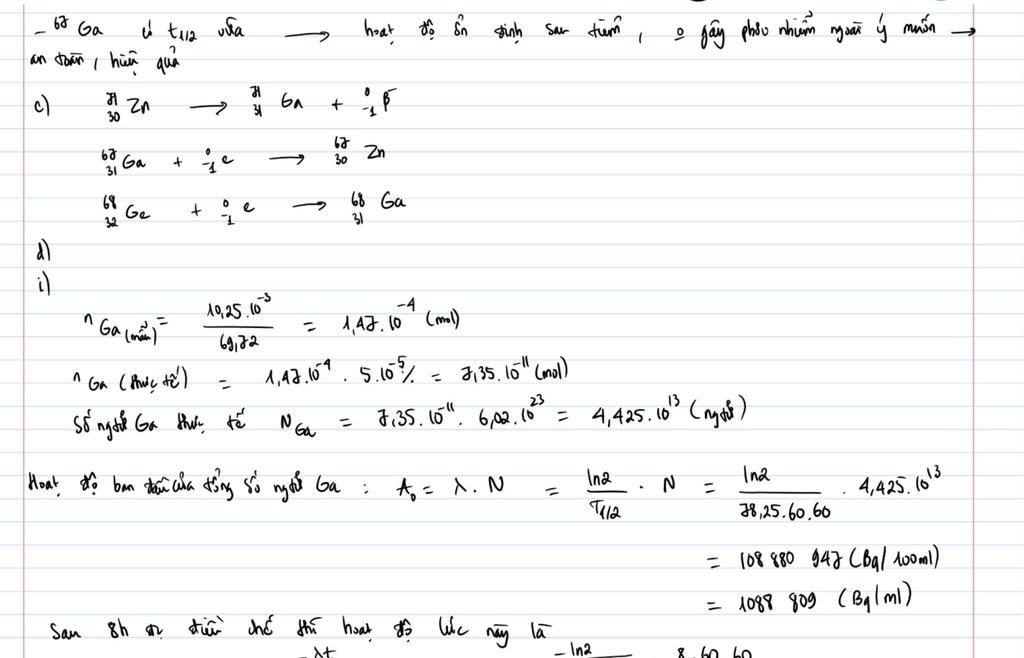 - ⁶⁷Ga có t1/2 vừa ⟶ hoạt độ ổn định sau tiêm, o gây phóng nhiễm ngoài ý muốn →
an toàn, hiệu quả
c) ⁷¹₃₀Zn ⟶ ⁷¹₃₁Ga + ⁰₋₁β⁻
⁶⁷₃₁Ga + ⁰₋₁e ⟶ ⁶⁷₃₀Zn
⁶⁸₃₂Ge + ⁰₋₁e ⟶ ⁶⁸₃₁Ga
d)
i)
nGa (mẫu) = 10,25.10⁻³ / 69,72 = 1,47.10⁻⁴ (mol)
nGa (thực tế) = 1,47.10⁻⁴ . 5.10⁻⁵% = 7,35.10⁻¹¹ (mol)
Số ngtử Ga thực tế NGa = 7,35.10⁻¹¹ . 6,02.10²³ = 4,425.10¹³ (ngtử)
Hoạt độ ban đầu của tổng số ngtử Ga : A₀ = λ.N = ln2 / T1/2 . N = ln2 / 78,25.60.60 . 4,425.10¹³
= 108 880 947 (Bq/100ml)
= 1088 809 (Bq/ml)
Sau 8h điều chế thì hoạt độ lúc này là
-λt -ln2 8.60.60